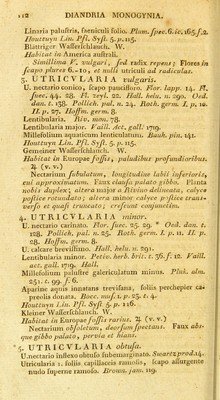 112 DIANDRIA MONOGYNIA.
Linaria palustris, foeniculi folio. Plum. spec. 6. ic. 165. f. 2.
Houttuyn Lin. Pfl. Syst. 5. p. 115.
Blattriger Wasserschlauch. W.
Habitat in America australi.
Simillima V. vulgari, sed radix repens; Flores in
scapo plures 6-10, et nulli utriculi ad radiculas.
3. UTRICULARIA vulgaris.
U. nectario conico, scapo paucifloro. Flor. lapp. 14. Fl.
suec. 44. 28. It. scel. 22. Hall. helv. n. 290. Oed.
dan. t. 138. Pollich. pal. n. 24. Roth. germ. I. p. 10.
II. p. 27. Hoffm. germ. 8.
Lentibularia. Riv. mon. 78.
Lentibularia major. Vaill. Act. gall. 1719.
Millefolium aquaticum lenticulatum. Bauh. pin. 141.
Houttuyn Lin. Pfl. Syst. 5. p. 115.
Gemeiner Wasserschlauch. W.
Habitat in Europae fossis, paludibus profundioribus.
♃ (v. v.)
Nectarium subulatum, longitudine labii inferioris,
cui approximatum. Faux clausa palato gibbo. Planta
nobis duplex; altera major a Rivino delineata, calyce
postice rotundato; altera minor calyce postice trans-
verso et quasi truncato; crescunt conjunctim.
4. UTRICULARIA minor.
U. nectario carinato. Flor. suec. 25. 29. * Oed. dan. t.
128. Pollich. pal. n. 25. Roth. germ. I. p. 11. II. p.
28. Hoffm. germ. 8.
U. calcare brevissimo. Hall. helv. n. 291.
Lentibularia minor. Petiv. herb. brit. t. 36. f. 12. Vaill.
act. gall. 1719. Hall.
Millefolium palustre galericulatum minus. Pluk. alm.
251. t. 99. f. 6.
Aparine aquis innatans trevisana, foliis perchepier ca-
preolis donata. Bocc. mus. 1. p. 23. t. 4.
Houttuyn Lin. Pfl. Syst. 5. p. 116.
Kleiner Wasserschlauch. W.
Habitat in Europae fossis rarius. ♃ (v. v.)
Nectarium obsoletum, deorsum spectans. Faux abs-
que gibbo palato, pervia et hians.
5. UTRICULARIA obtusa.
U. nectario inflexo obtuso subemarginato. Swartz prod. 14.
Utricularia 1. foliis capillaceis ramosis, scapo assurgente
nudo superne ramoso. Brown. jam. 119.